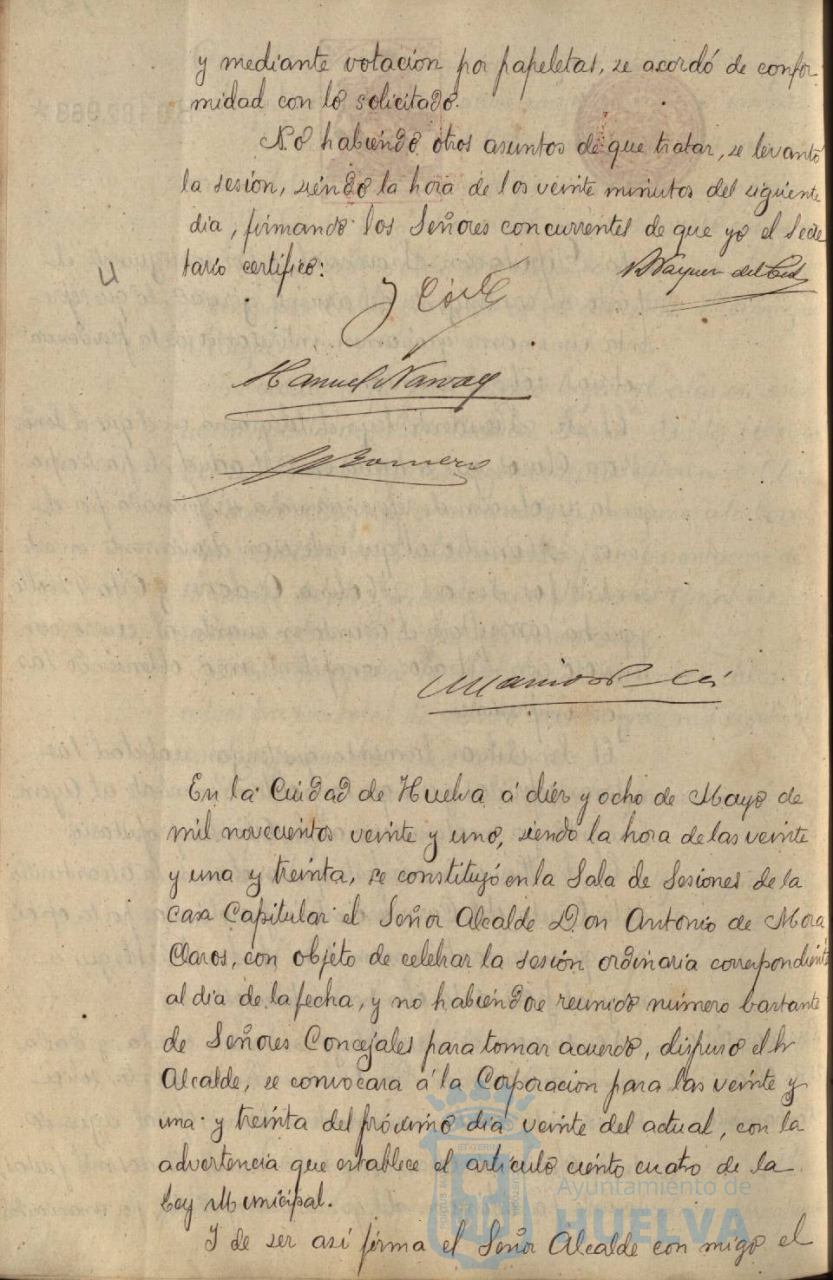 y mediante votación por papeletas, se acordó de confor
midad con lo solicitado.
No habiendo otros asuntos de que tratar, se levantó
la sesión, siendo la hora de los veinte minutos del siguiente
dia, firmando los Señores concurrentes de que yo el Secre
tario certifico:
Manuel Narvaez
Romero
En la Ciudad de Huelva á diez y ocho de Mayo de
mil novecientos veinte y uno, siendo la hora de las veinte
y una y treinta, se constituyó en la Sala de Sesiones de la
Casa Capitular el Señor Alcalde Don Antonio de Mora
Claros, con objeto de celebrar la sesión ordinaria correspondiente
al dia de la fecha, y no habiéndose reunido número bastante
de Señores Concejales para tomar acuerdo, dispuso el Sr
Alcalde, se convocara á la Corporacion para las veinte y
una y treinta del próximo dia veinte del actual, con la
advertencia que establece el artículo ciento cuatro de la
Ley Municipal.
Y de ser así firma el Señor Alcalde con migo el
Ayuntamiento de
HUELVA